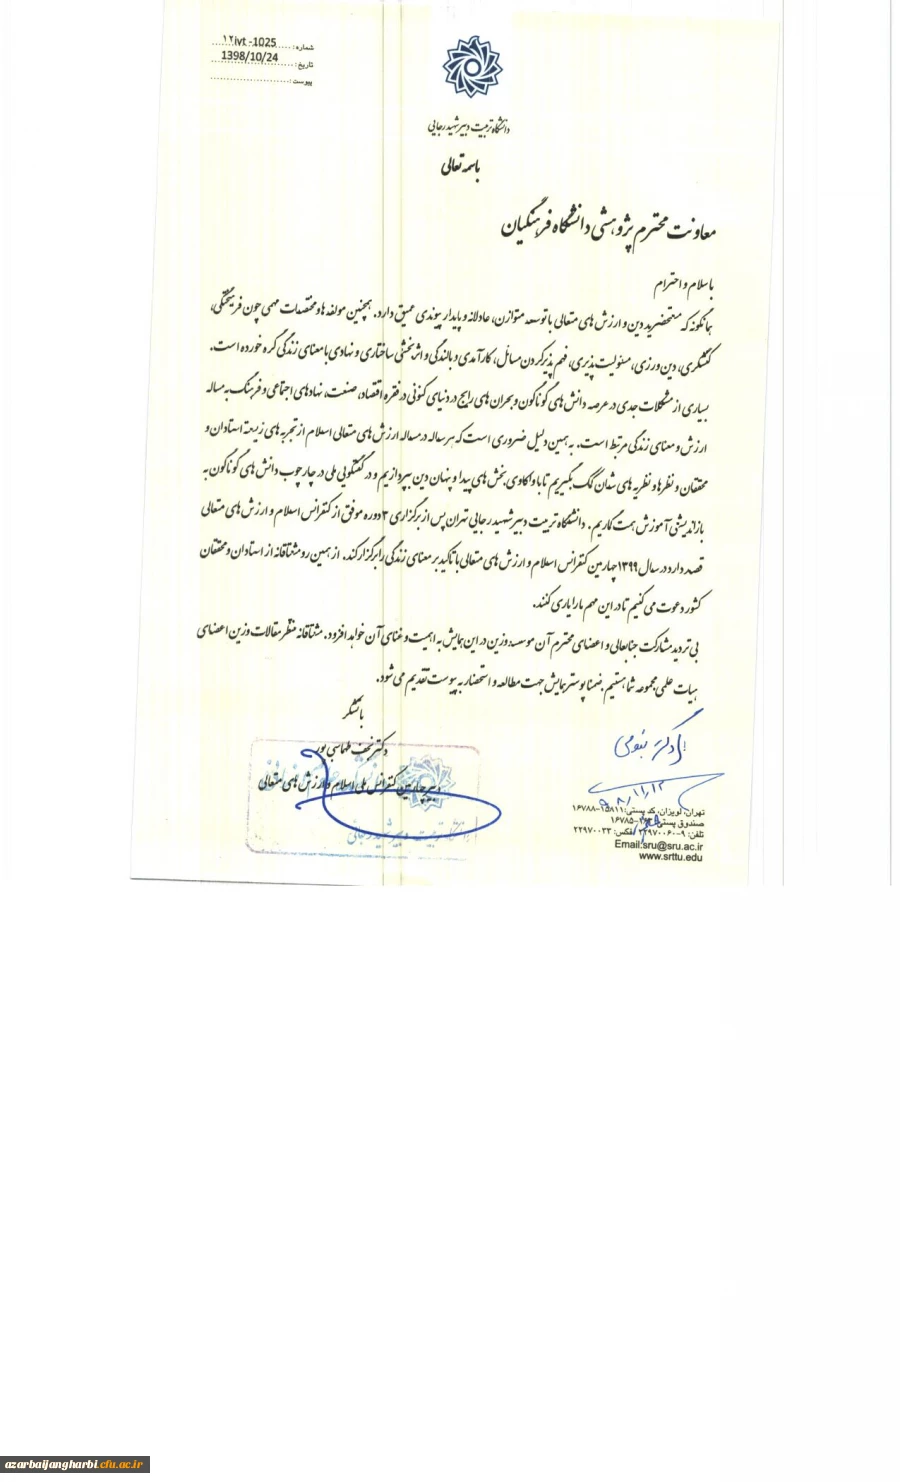 شماره: ۱۲ivt -1025
تاریخ: 1398/10/24
پیوست:
دانشگاه تربیت دبیر شهید رجایی
باسمه تعالی
معاونت محترم پژوهشی دانشگاه فرهنگیان
با سلام و احترام
همانگونه که مستحضرید دین و ارزش های متعالی با توسعه متوازن، عادلانه و پایدار پیوندی عمیق دارد. همچنین مولفه ها و مختصات مهمی چون فرهیختگی،
کنشگری، دین ورزی، مسئولیت پذیری، فهم پذیر کردن مسائل، کارآمدی و بالندگی و اثربخشی ساختاری و نهادی با معنای زندگی گره خورده است.
بسیاری از مشکلات جدی در عرصه دانش های گوناگون و بحران های رایج در دنیای کنونی در فقره اقتصاد، صنعت، نهادهای اجتماعی و فرهنگ به مساله
ارزش و معنای زندگی مرتبط است. به همین دلیل ضروری است که هر ساله در مساله ارزش های متعالی اسلام از تجربه های زیسته استادان و
محققان و نظرها و نظریه های شان کمک بگیریم تا با واکاوی بخش های پیدا و پنهان دین بپردازیم و در گفتگویی ملی در چارچوب دانش های گوناگون به
بازاندیشی آموزش همت گماریم. دانشگاه تربیت دبیر شهید رجایی تهران پس از برگزاری ۳ دوره موفق از کنفرانس اسلام و ارزش های متعالی
قصد دارد در سال ۱۳۹۹ چهارمین کنفرانس اسلام و ارزش های متعالی با تاکید بر معنای زندگی را برگزار کند. از همین رو مشتاقانه از استادان و محققان
کشور دعوت می کنیم تا در این مهم ما را یاری کنند.
بی تردید مشارکت جنابعالی و اعضای محترم آن موسسه وزین در این همایش به اهمیت و غنای آن خواهد افزود. مشتاقانه منتظر مقالات وزین اعضای
هیات علمی مجموعه شما هستیم. ضمنا پوستر همایش جهت مطالعه و استحضار به پیوست تقدیم می شود.
با تشکر
دکتر نجف طهماسبی پور
دبیر چهارمین کنفرانس ملی اسلام و ارزش های متعالی
دانشگاه تربیت دبیر شهید رجائی
۹۸/۱۱/۱۲
تهران، لویزان، کد پستی: ۱۵۸۱۱-۱۶۷۸۸
صندوق پستی: ۱۶۷۸۵-
تلفن: ۹-۲۲۹۷۰۰۶۰ فکس: ۲۲۹۷۰۰۳۳
Email:sru@sru.ac.ir
www.srttu.edu
azarbaijangharbi.cfu.ac.ir